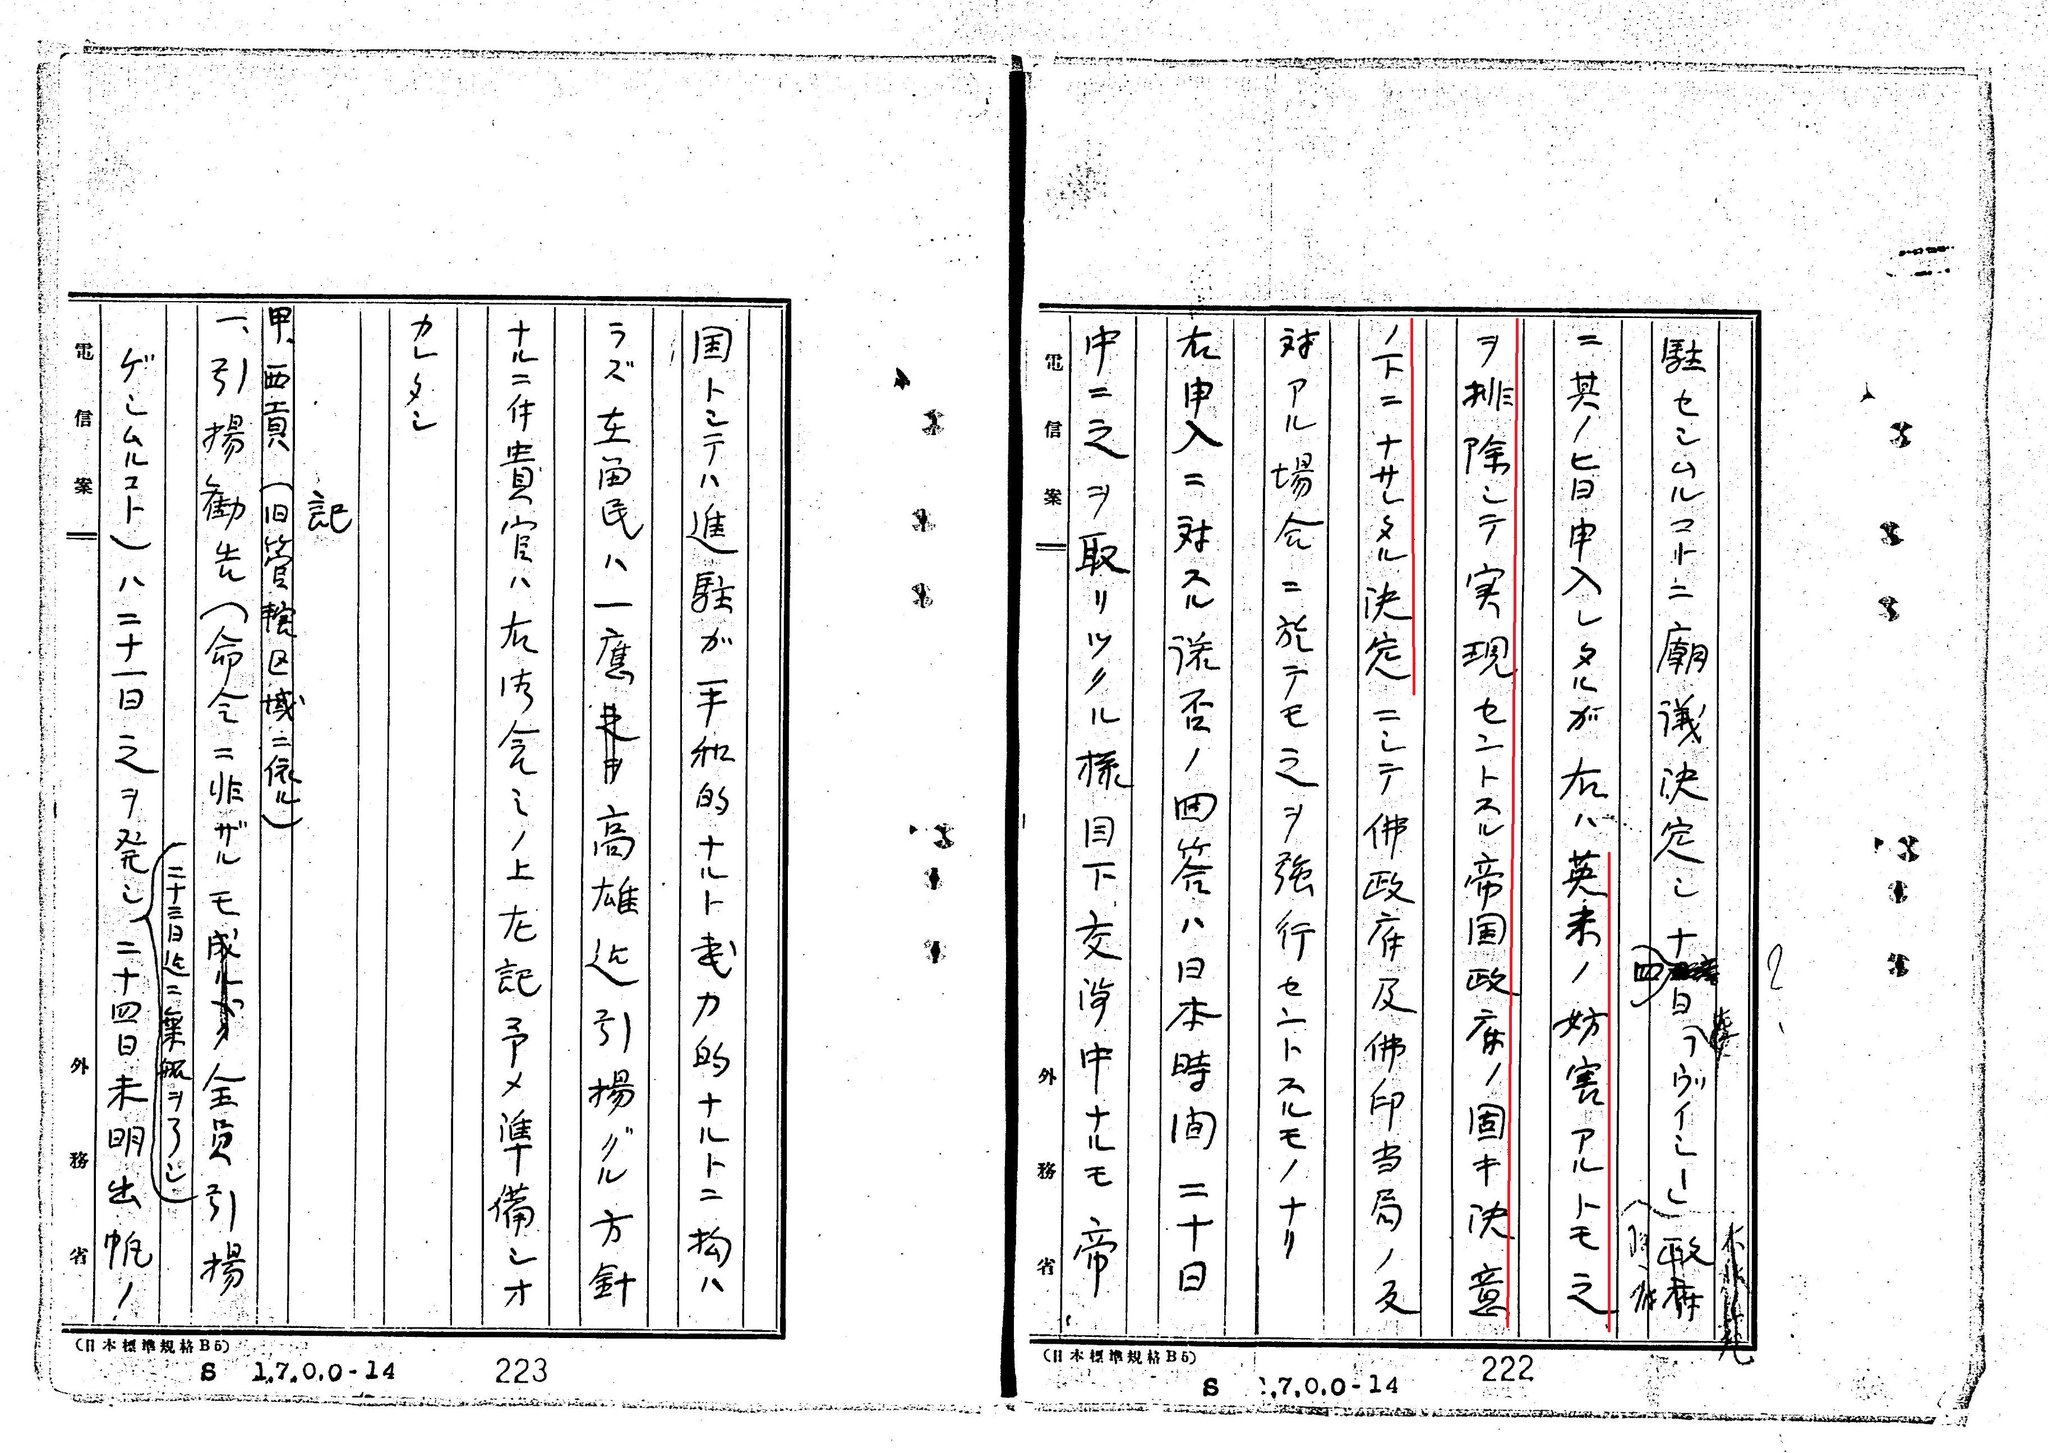 駐セシムルコトニ廟議決定シ十四日「ヴィシー」政府
ニ其ノ旨申入レタルガ右ハ英米ノ妨害アルトモ之
ヲ排除シテ実現セントスル帝国政府ノ固キ決意
ノ下ニナサレタル決定ニシテ佛政府及佛印当局ノ反
対アル場合ニ於テモ之ヲ強行セントスルモノナリ
右申入ニ対スル諾否ノ回答ハ日本時間二十日
中ニ之ヲ取リツクル様目下交渉中ナルモ帝
電信案
外務省
(日本標準規格B5)
S 1.7.0.0-14
222
国トシテハ進駐ガ平和的ナルト武力的ナルトニ拘ハ
ラズ在留民ハ一應高雄迄引揚グル方針
ナルニ付貴官ハ右御含ミノ上左記予メ準備シオ
カレタシ
記
甲、西貢(旧管轄区域ニ依ル)
一、引揚勧告(命令ニ非ザルモ成ルガ全員引揚
二十三日迄ニ乗船ヲ了シ
ゲシムルコト)ハ二十一日之ヲ発シ二十四日未明出帆ノ
電信案
外務省
(日本標準規格B5)
S 1.7.0.0-14
223